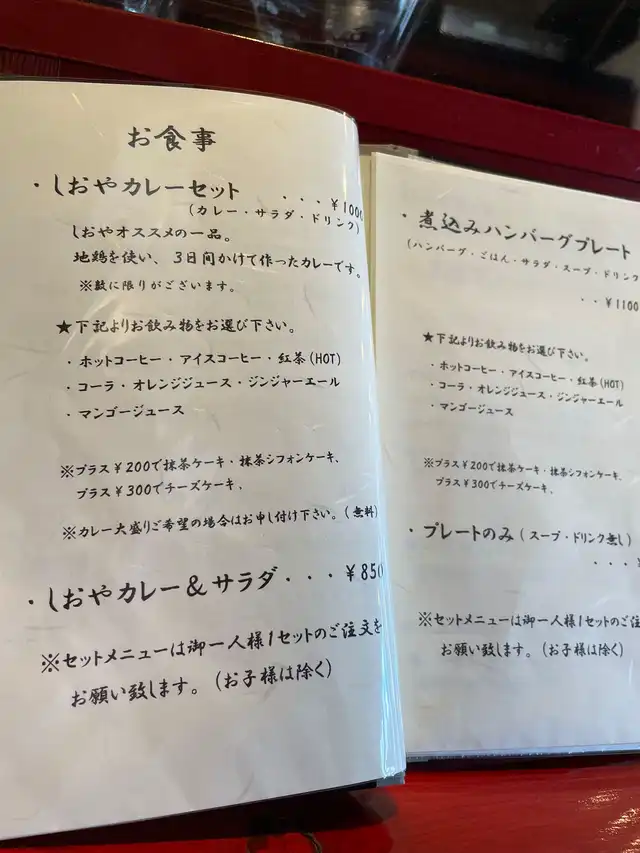 お食事
・しおやカレーセット ・・・¥1000
(カレー・サラダ・ドリンク)
しおやオススメの一品。
地鶏を使い、3日間かけて作ったカレーです。
※数に限りがございます。
★下記よりお飲み物をお選び下さい。
・ホットコーヒー・アイスコーヒー・紅茶(HOT)
・コーラ・オレンジジュース・ジンジャーエール
・マンゴージュース
※プラス¥200で抹茶ケーキ・抹茶シフォンケーキ、
プラス¥300でチーズケーキ、
※カレー大盛りご希望の場合はお申し付け下さい。(無料)
・しおやカレー&サラダ・・・¥850
※セットメニューは御一人様1セットのご注文を
お願い致します。(お子様は除く)
・煮込みハンバーグプレート
(ハンバーグ・ごはん・サラダ・スープ・ドリンク
・・¥1100
★下記よりお飲み物をお選び下さい。
・ホットコーヒー・アイスコーヒー・紅茶(HOT)
・コーラ・オレンジジュース・ジンジャーエール
・マンゴージュース
※プラス¥200で抹茶ケーキ・抹茶シフォンケーキ、
プラス¥300でチーズケーキ、
・プレートのみ(スープ・ドリンク無し)
・・・
※セットメニューは御一人様1セットのご
お願い致します。(お子様は除く)